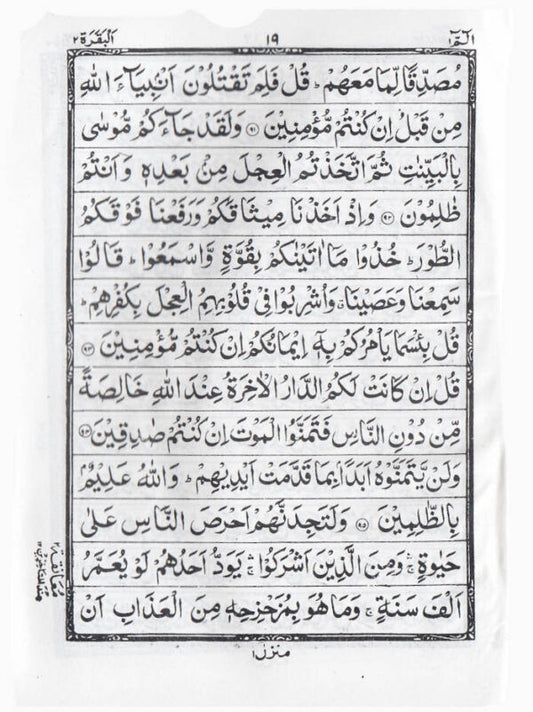 الٓمّٓ ١
١٩
اَلْبَقَرَة ٢
مُصَدِّقًا لِّمَا مَعَهُمْ ؕ قُلْ فَلِمَ تَقْتُلُوْنَ اَنْۢبِيَآءَ اللّٰهِ
مِنْ قَبْلُ اِنْ كُنْتُمْ مُّؤْمِنِيْنَ ﴿٩١﴾ وَلَقَدْ جَآءَكُمْ مُّوْسٰى
بِالْبَيِّنٰتِ ثُمَّ اتَّخَذْتُمُ الْعِجْلَ مِنْۢ بَعْدِهٖ وَاَنْتُمْ
ظٰلِمُوْنَ ﴿٩٢﴾ وَاِذْ اَخَذْنَا مِيْثَاقَكُمْ وَرَفَعْنَا فَوْقَكُمُ
الطُّوْرَ ؕ خُذُوْا مَاۤ اٰتَيْنٰكُمْ بِقُوَّةٍ وَّاسْمَعُوْا ؕ قَالُوْا
سَمِعْنَا وَعَصَيْنَا ۗ وَاُشْرِبُوْا فِيْ قُلُوْبِهِمُ الْعِجْلَ بِكُفْرِهِمْ ؕ
قُلْ بِئْسَمَا يَاْمُرُكُمْ بِهٖۤ اِيْمَانُكُمْ اِنْ كُنْتُمْ مُّؤْمِنِيْنَ ﴿٩٣﴾
قُلْ اِنْ كَانَتْ لَكُمُ الدَّارُ الْاٰخِرَةُ عِنْدَ اللّٰهِ خَالِصَةً
مِّنْ دُوْنِ النَّاسِ فَتَمَنَّوُا الْمَوْتَ اِنْ كُنْتُمْ صٰدِقِيْنَ ﴿٩٤﴾
وَلَنْ يَّتَمَنَّوْهُ اَبَدًاۢ بِمَا قَدَّمَتْ اَيْدِيْهِمْ ؕ وَاللّٰهُ عَلِيْمٌۢ
بِالظّٰلِمِيْنَ ﴿٩٥﴾ وَلَتَجِدَنَّهُمْ اَحْرَصَ النَّاسِ عَلٰى
حَيٰوةٍ ۛۚ وَمِنَ الَّذِيْنَ اَشْرَكُوْا ۛۚ يَوَدُّ اَحَدُهُمْ لَوْ يُعَمَّرُ
اَلْفَ سَنَةٍ ۚ وَمَا هُوَ بِمُزَحْزِحِهٖ مِنَ الْعَذَابِ اَنْ
معانقة ٢
منزل ١